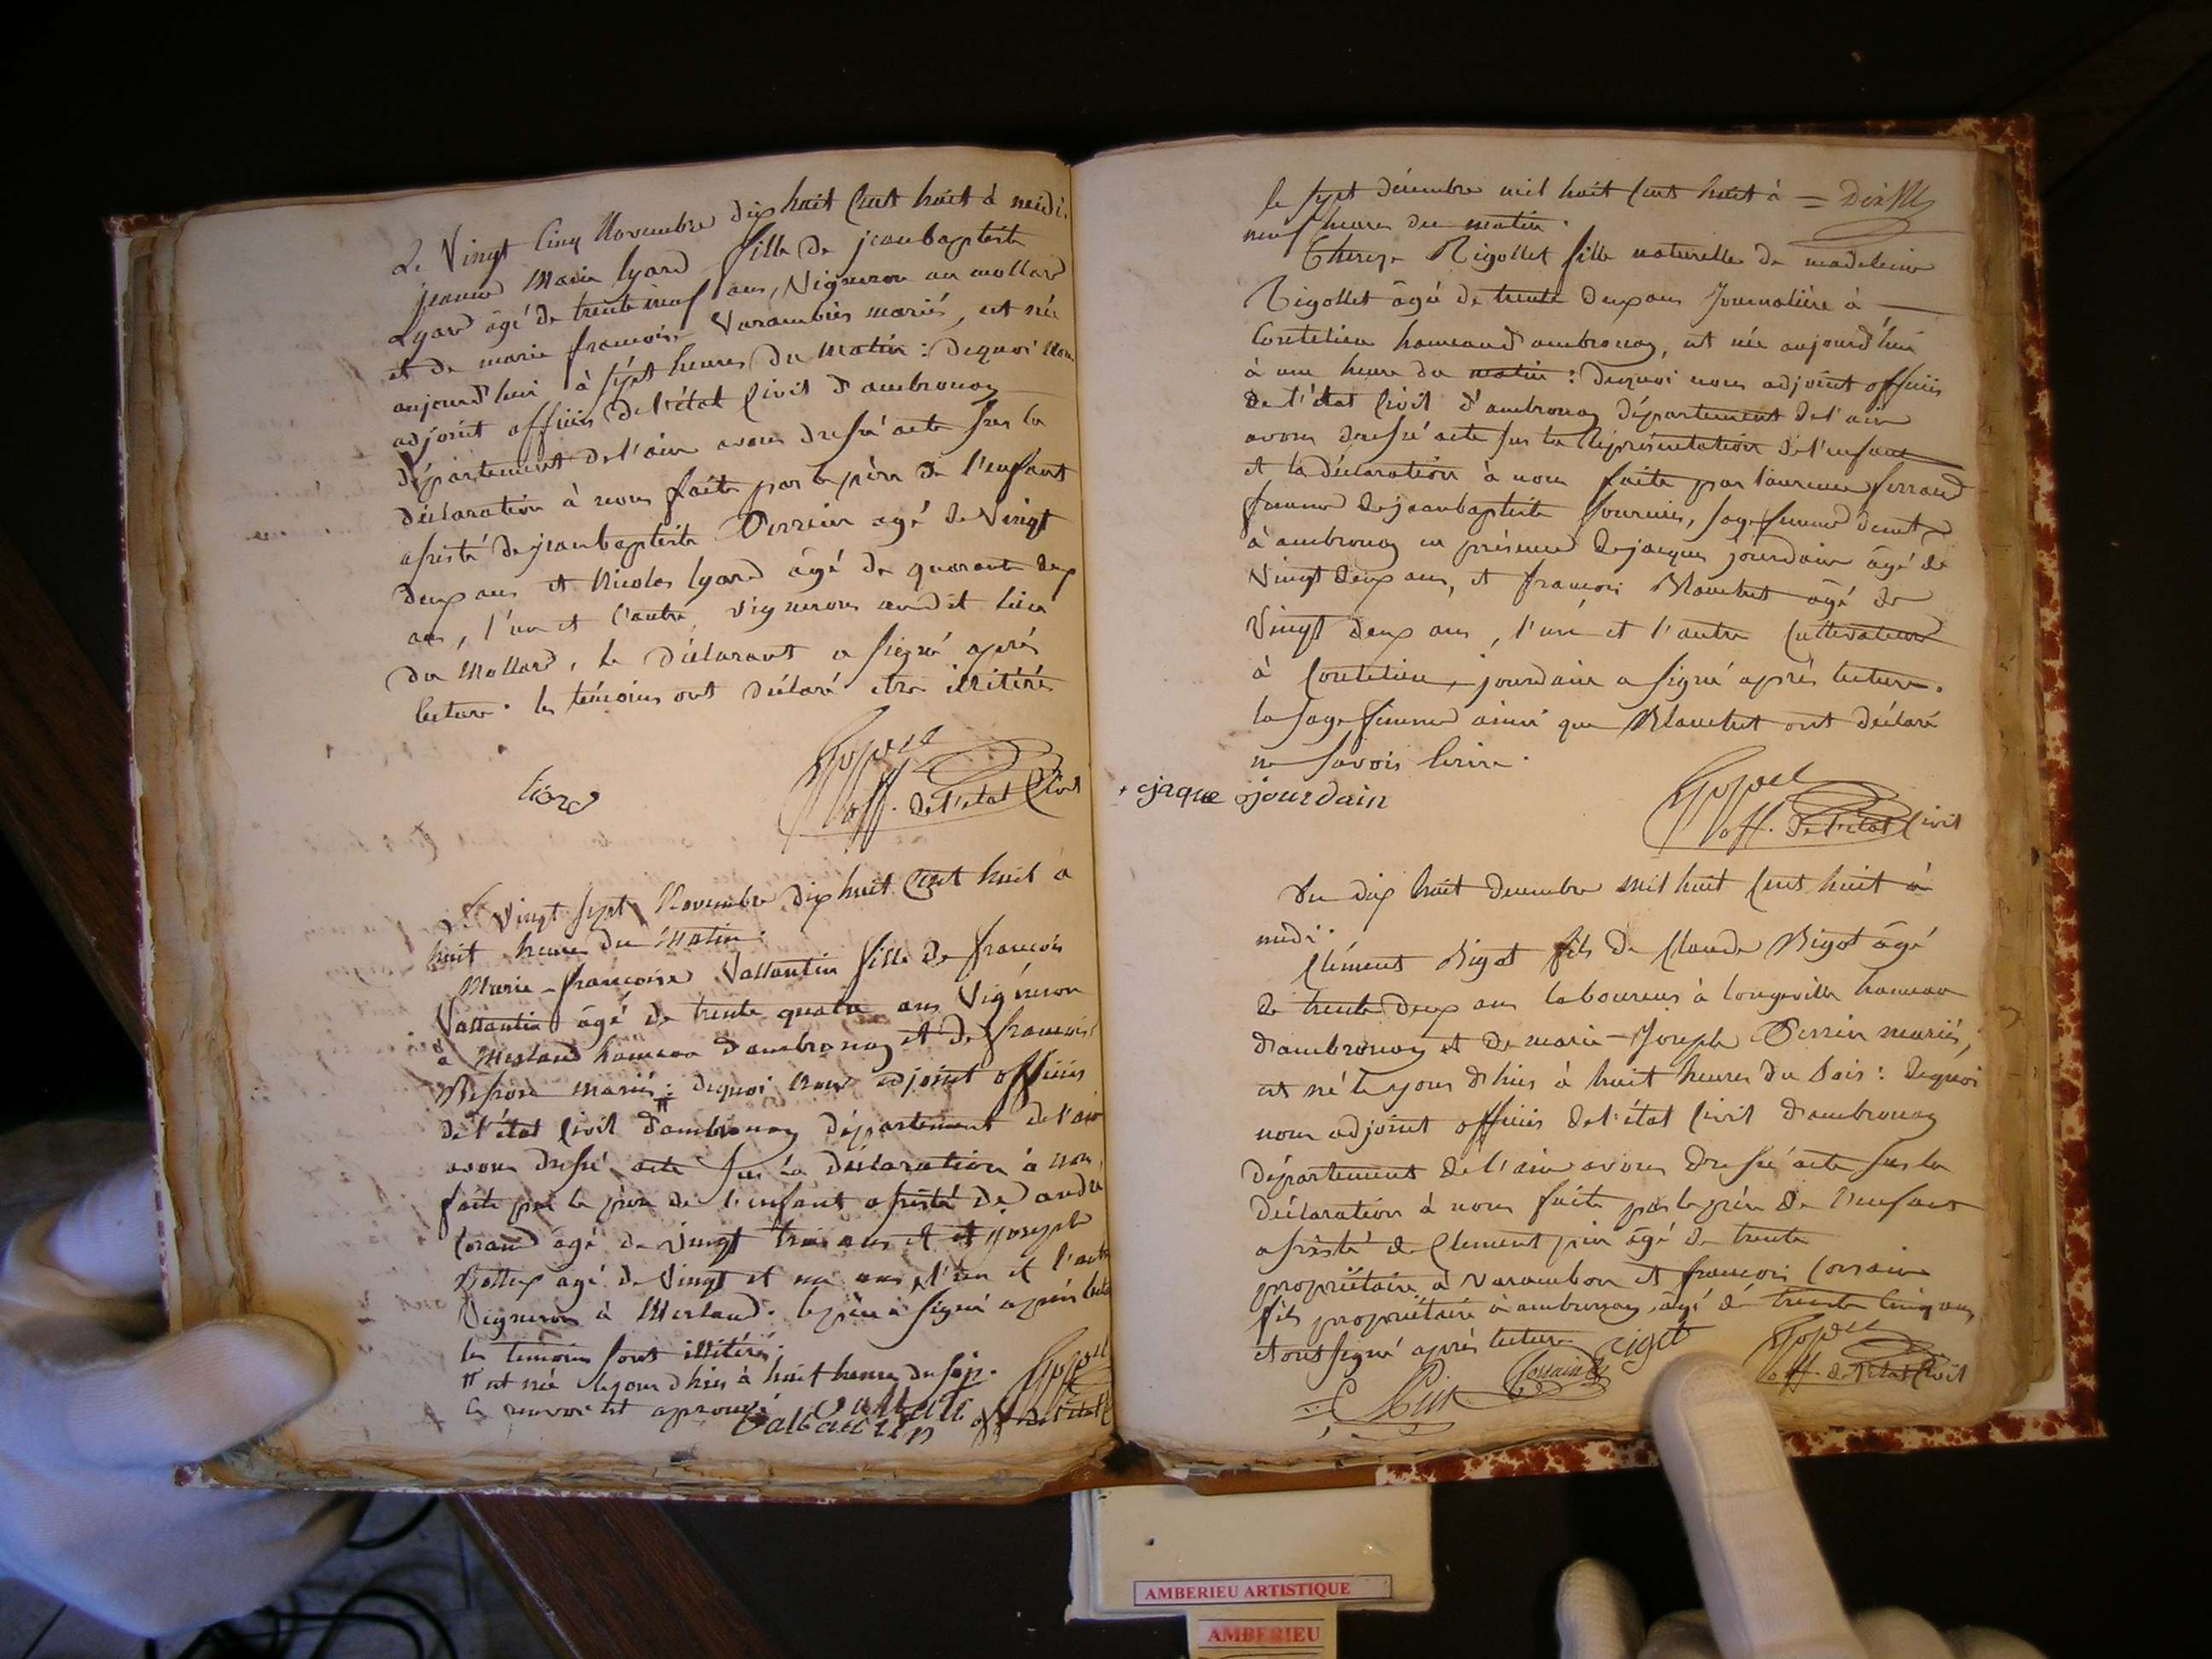 Le Vingt Cinq Novembre dix huit Cent huit à midi.
jeanne Marie lyard fille de jeanbaptiste
Lyard âgé de trente neuf ans, Vigneron au mollard
et de marie françoise Varambier mariés, est née
aujourd'hui à sept heures du Matin : dequoi Nous
adjoint officier de l'état Civil d'ambronay
département de l'ain avons dressé acte sur la
déclaration à nous faite par le père de l'enfant
assisté de jeanbaptiste Perrin agé de Vingt
deux ans et Nicolas lyard âgé de quarante deux
ans, l'un et l'autre vignerons audit lieu
du Mollard, le déclarant a signé après
lecture. les témoins ont déclaré etre illitérés
liard
off. de l'état Civil
Le Vingt sept Novembre dix huit Cent huit à
huit heures du Matin.
Marie-françoise Vallantin fille de françois
Vallantin âgé de trente quatre ans Vigneron
à Merland hameau d'ambronay et de françoise
mariés : # dequoi Nous adjoint officier
de l'état Civil d'ambronay département de l'ain
avons dressé acte sur la déclaration à nous
faite par le père de l'enfant assisté de andré
âgé de Vingt trois ans et et joseph
agé de Vingt et un ans, l'un et l'autre
Vignerons à Merland. le père a signé après lecture
les témoins sont illitérés.
# est née le jour d'hier à huit heures du soir.
le renvoi est aprouvé
off. de l'état
le sept décembre mil huit Cent huit à =
neuf heures du matin.
Thereze Rigollet fille naturelle de madeleine
Rigollet âgée de trente deux ans Journalière à
Coutelieu hameau d'ambronay, est née aujourd'hui
à une heure du matin : dequoi nous adjoint officier
de l'état Civil d'ambronay département de l'ain
avons dressé acte sur la Représentation de l'enfant
et la déclaration à nous faite par laurence ferrand
femme de jeanbaptiste fournier, sage femme demt
à ambronay en présence de jacques jourdain âgé de
Vingt deux ans, et françois Blanchet âgé de
Vingt deux ans, l'un et l'autre Cultivateurs
à Coutelieu, jourdain a signé après lecture.
la sage femme ainsi que Blanchet ont déclaré
ne savoir écrire.
jaque jourdain
off. de l'état Civil
Du dix huit decembre mil huit Cent huit à
midi.
Clément Bigot fils de Claude Bigot âgé
de trente deux ans laboureur à longeville hameau
d'ambronay et de marie-Joseph Perrin mariés,
est né le jour d'hier à huit heures du soir : dequoi
nous adjoint officier de l'état Civil d'ambronay
département de l'ain avons dressé acte sur la
déclaration à nous faite par le père de l'enfant
assisté de Clement pin âgé de trente
propriétaire à varambon et françois Corsain
fils propriétaire à ambronay, âgé de trente Cinq ans
et ont signé après lecture
Bigot
C Pin
Corsain
off. de l'état Civil
AMBERIEU ARTISTIQUE
AMBERIEU